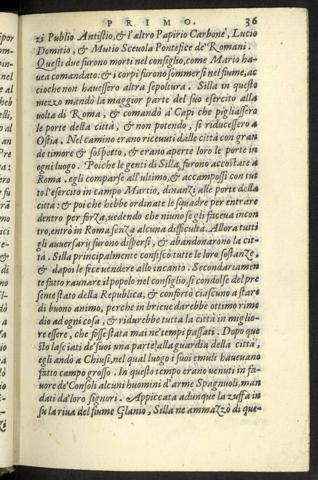 PRIMO. 36
zi Publio Antistio, & l'altro Papirio Carbone, Lucio
Domitio, & Mutio Sceuola Pontefice de' Romani.
Questi due furono morti nel consiglio, come Mario ha-
uea comandato: & i corpi furono sommersi nel fiume, ac
cioche non hauessero altra sepoltura. Silla in questo
mezzo mandò la maggior parte del suo esercito alla
volta di Roma, & comandò a' Capi che pigliassero
le porte della città, & non potendo, si riducessero a
Ostia. Nel camino erano riceuuti dalle città con gran
de timore & sospetto, & erano aperte loro le porte in
ogni luogo. Poiche le genti di Silla furono accostate a
Roma. egli comparse all'ultimo, & accampossi con tut
to l'esercito in campo Martio, dinanzi alle porte della
città: & poi che hebbe ordinate le squadre per entrare
dentro per forza, uedendo che niuno se gli faceua incon
tro, entrò in Roma senza alcuna difficultà. Allora tutti
gli auuersari furono dispersi, & abandonarono la cit-
tà. Silla principalmente confiscò tutte le loro sostanze,
& dapoi le fece vendere allo incanto. Secondariamen
te fatto raunare il popolo nel consiglio, si condolse del pre
sente stato della Republica, & confortò ciascuno a stare
di buono animo, perche in brieue darebbe ottimo rime
dio ad ogni cosa, & ridurebbe tutta la città in miglio-
re essere, che fosse stata mai ne' tempi passati. Dopo que
sto lasciati de' suoi una parte alla guardia della città,
egli andò a Chiusi, nel qual luogo i suoi emuli haueuano
fatto campo grosso. In questo tempo erano uenuti in fa-
uore de' Consoli alcuni huomini d'arme Spagnuoli, man
dati da' loro signori. Appiccata adunque la zuffa in
su la riua del fiume Glanio, Silla ne ammazzò di que-